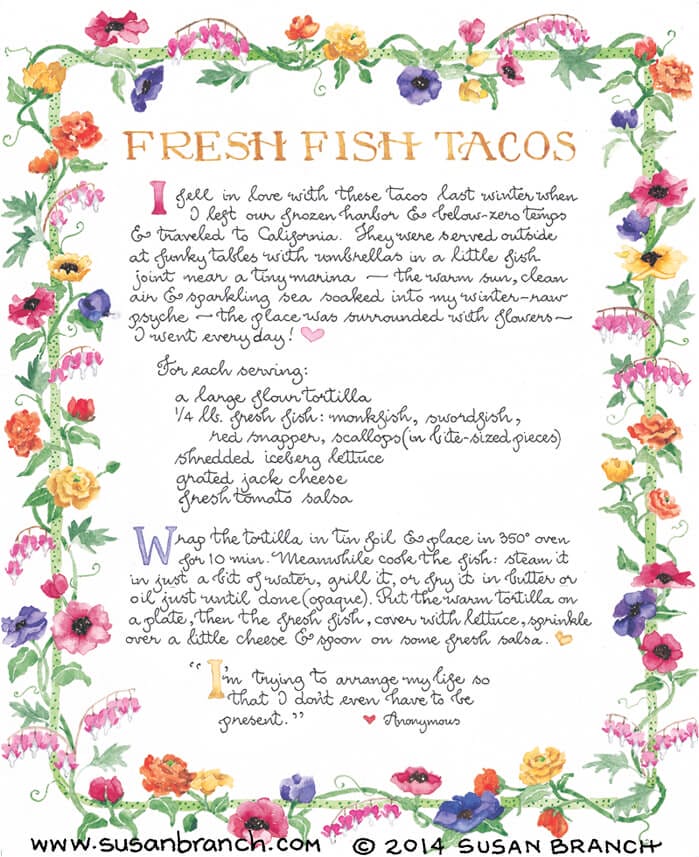 FRESH FISH TACOS
I fell in love with these tacos last winter when
I left our frozen harbor & below-zero temps
& traveled to California. They were served outside
at funky tables with umbrellas in a little fish
joint near a tiny marina — the warm sun, clean
air & sparkling sea soaked into my winter-raw
psyche — the place was surrounded with flowers —
I went every day! ♡
For each serving:
a large flour tortilla
1/4 lb. fresh fish: monkfish, swordfish,
red snapper, scallops (in bite-sized pieces)
shredded iceberg lettuce
grated jack cheese
fresh tomato salsa
Wrap the tortilla in tin foil & place in 350° oven
for 10 min. Meanwhile cook the fish: steam it
in just a bit of water, grill it, or fry it in butter or
oil just until done (opaque). Put the warm tortilla on
a plate, then the fresh fish, cover with lettuce, sprinkle
over a little cheese & spoon on some fresh salsa.
"I'm trying to arrange my life so
that I don't even have to be
present." ♥ Anonymous
www.susanbranch.com © 2014 SUSAN BRANCH